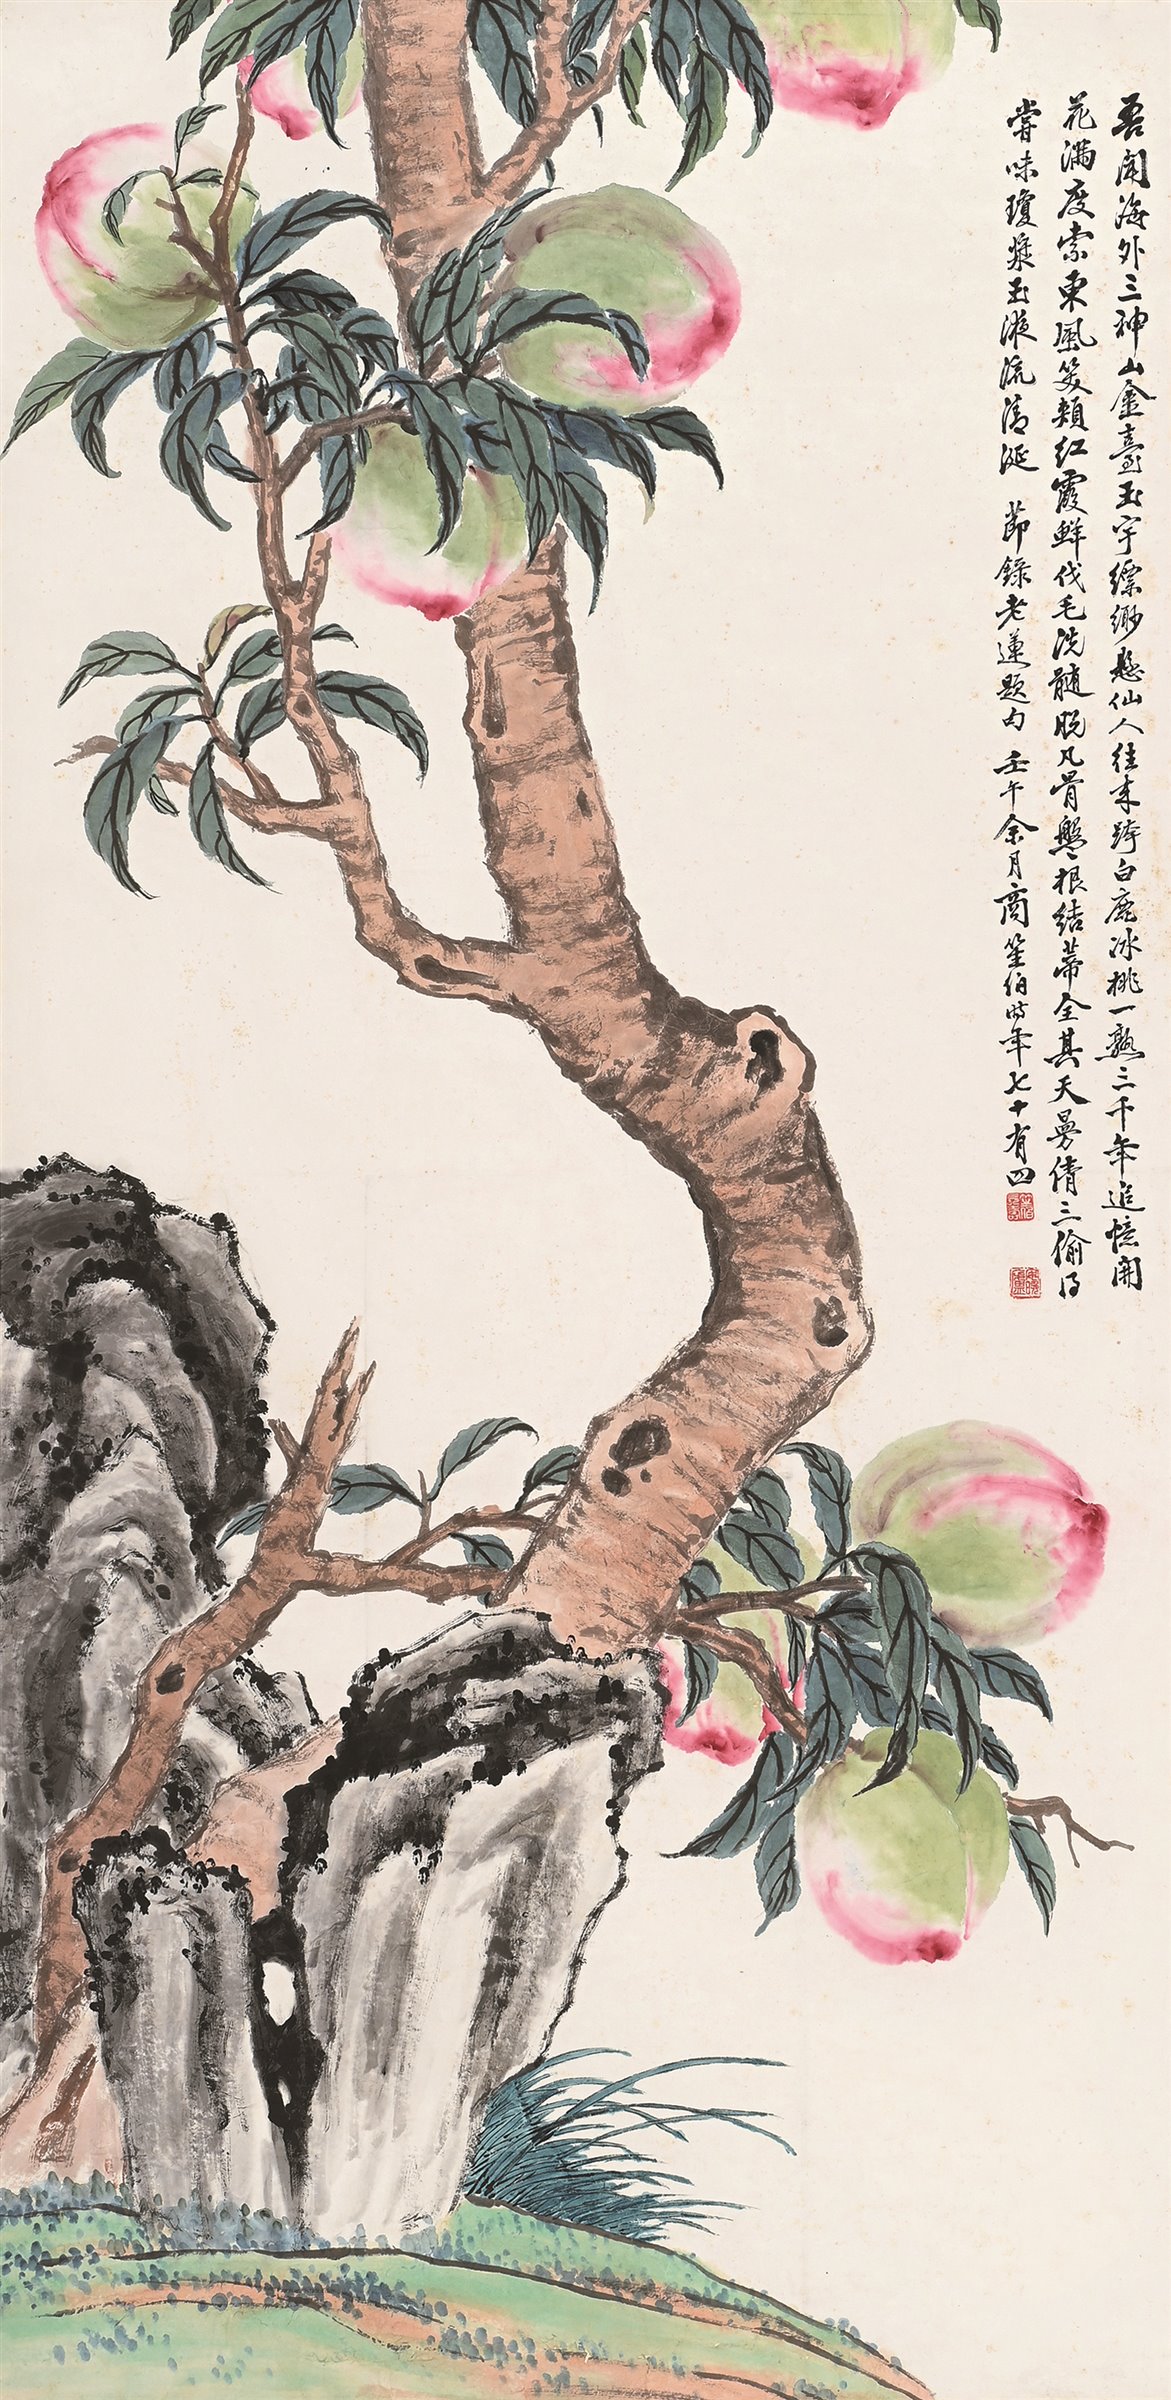 吾闻海外三神山金臺玉宇缥缈悬仙人往来跨白鹿冰桃一熟三千年追憶開
花满度索東風笑頰红霞鲜伐毛洗髓脱凡骨盤〻根结蒂全其天曼倩三偷得
嘗味瓊漿玉液流清涎 節録老蓮題句 壬午余月商笙伯時年七十有四